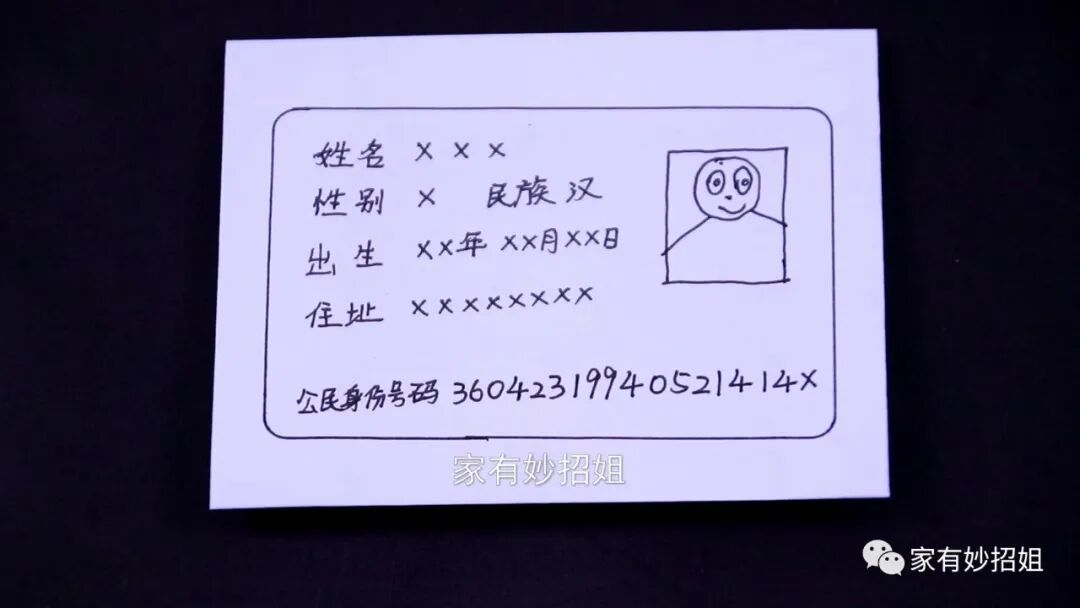 姓名 ×××
性别 × 民族汉
出生 ××年××月××日
住址 ××××××××
公民身份号码 36042319940521414×
家有妙招姐
家有妙招姐